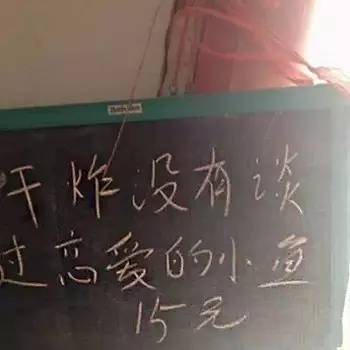 干炸没有谈
过恋爱的小鱼
15元